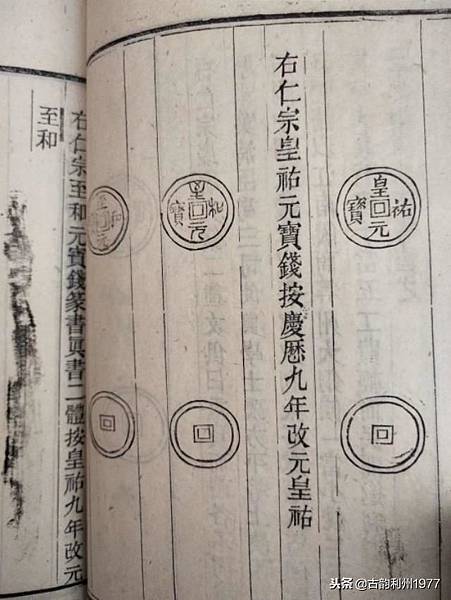 皇祐元寶
右仁宗皇祐元寶錢按慶曆九年改元皇祐
右仁宗至和元寶錢篆書眞書二體按皇祐九年改元
至和
头条 @古韵利州1977